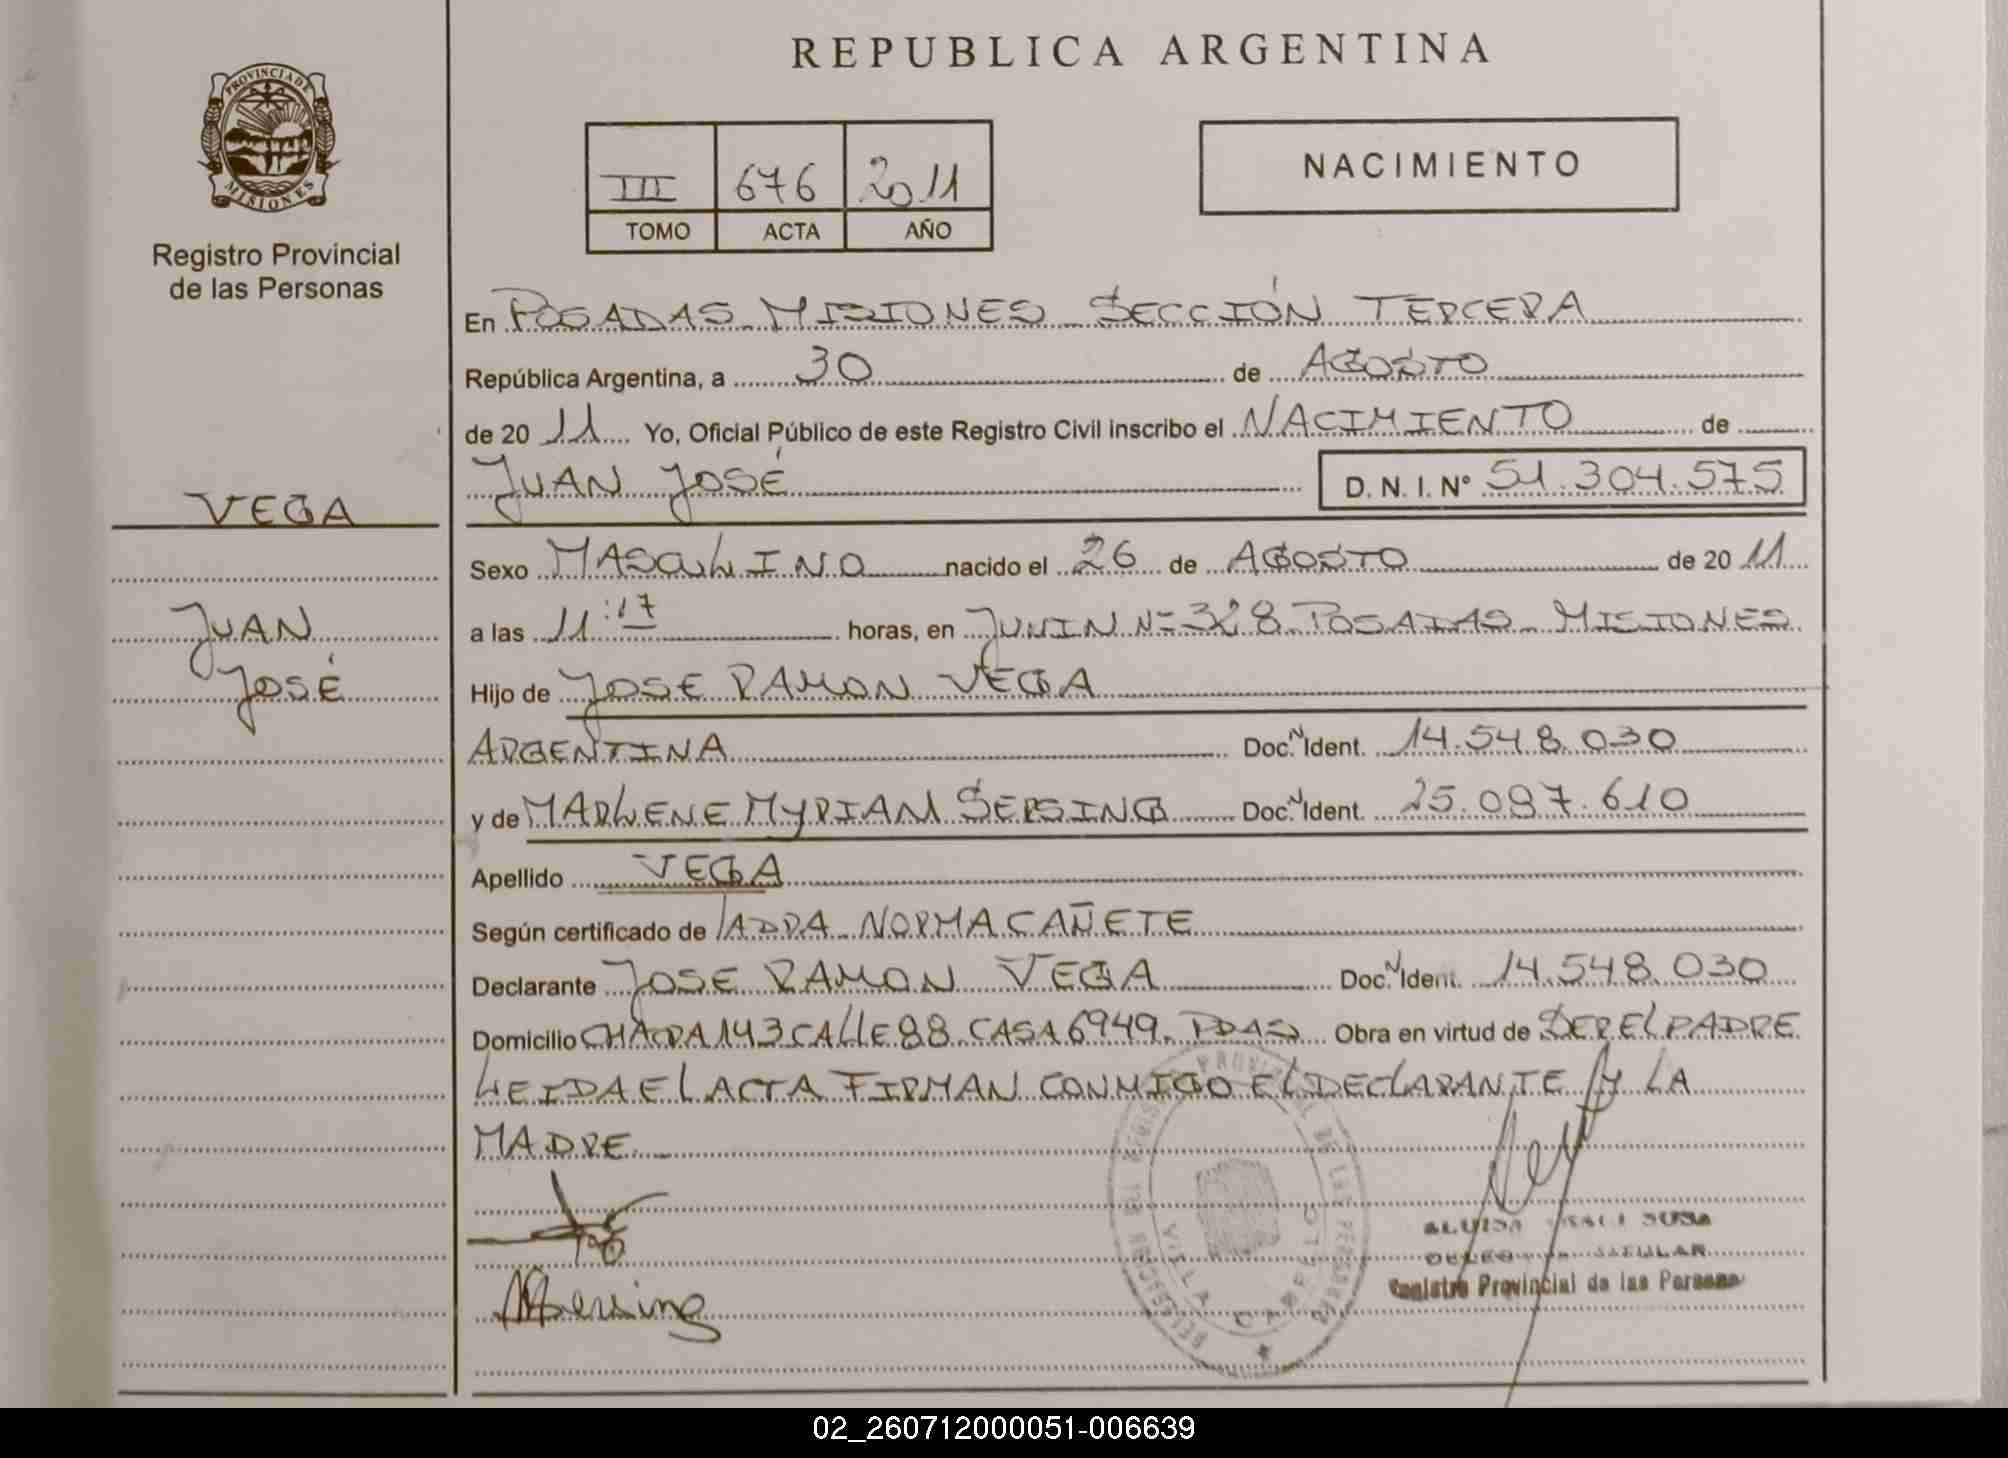 REPUBLICA ARGENTINA
PROVINCIA DE
MISIONES
Registro Provincial
de las Personas
III 676 2011
TOMO ACTA AÑO
NACIMIENTO
En POSADAS MISIONES SECCIÓN TERCERA
República Argentina, a 30 de AGOSTO
de 20 11 Yo, Oficial Público de este Registro Civil inscribo el NACIMIENTO de
JUAN JOSÉ D. N. I. N° 51.304.575
VEGA
JUAN
JOSÉ
Sexo MASCULINO nacido el 26 de AGOSTO de 20 11
a las 11:17 horas, en JUNIN Nº 328 POSADAS MISIONES
Hijo de JOSE RAMON VEGA
ARGENTINA Doc. N Ident. 14.548.030
y de MARLENE MYRIAM SERSING Doc. N Ident. 25.087.610
Apellido VEGA
Según certificado de NORMA CAÑETE
Declarante JOSE RAMON VEGA Doc. N Ident. 14.548.030
Domicilio CHACRA 143 CALLE 88 CASA 6949. PDAS Obra en virtud de SER EL PADRE
LEIDA EL ACTA FIRMAN CONMIGO EL DECLARANTE Y LA
MADRE
Registro Provincial de las Personas
02_260712000051-006639